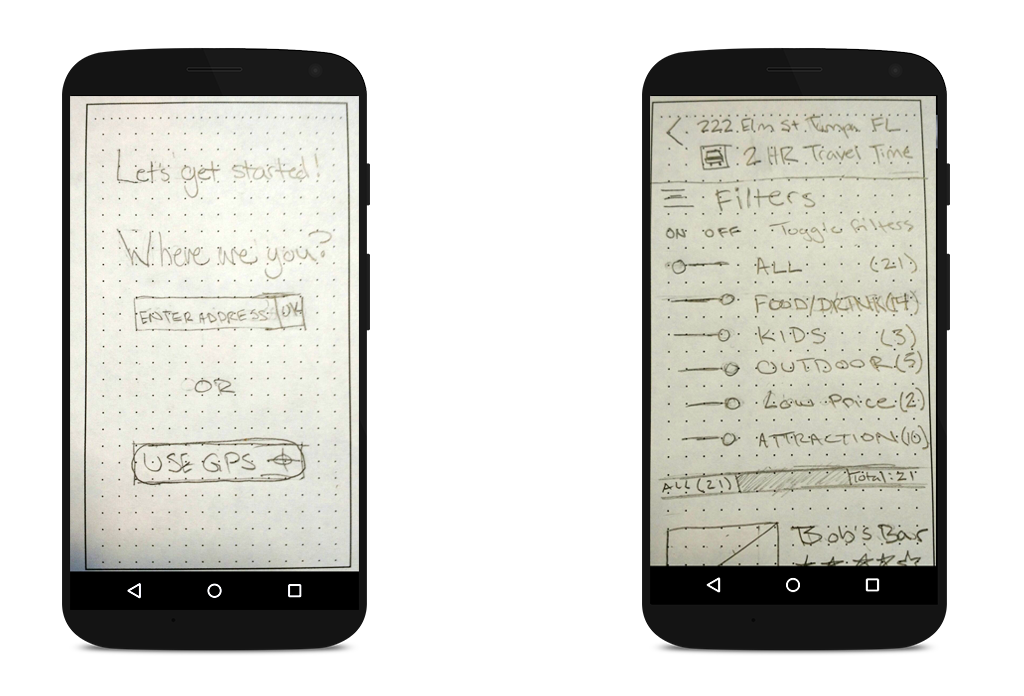 Let's get started!
Where are you?
ENTER ADDRESS OK
OR
USE GPS
222 Elm St. Tampa FL
2 HR Travel Time
Filters
ON OFF Toggle filters
ALL (21)
FOOD/DRINK (14)
KIDS (3)
OUTDOOR (5)
Low Price (2)
ATTRACTION (10)
ALL (21) Total: 21
Bob's Bar